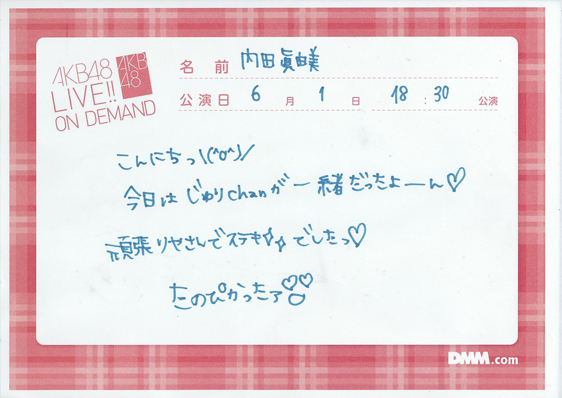 AKB48
LIVE!!
ON DEMAND
AKB
48
名前 内田眞由美
公演日 6月1日 18:30 公演
こんにちっ\(^o^)/
今日はじゅりchanが一緒だったよーん♡
頑張りやさんでステキでしたっ♡
たのぴかったァ♡♡
DMM.com